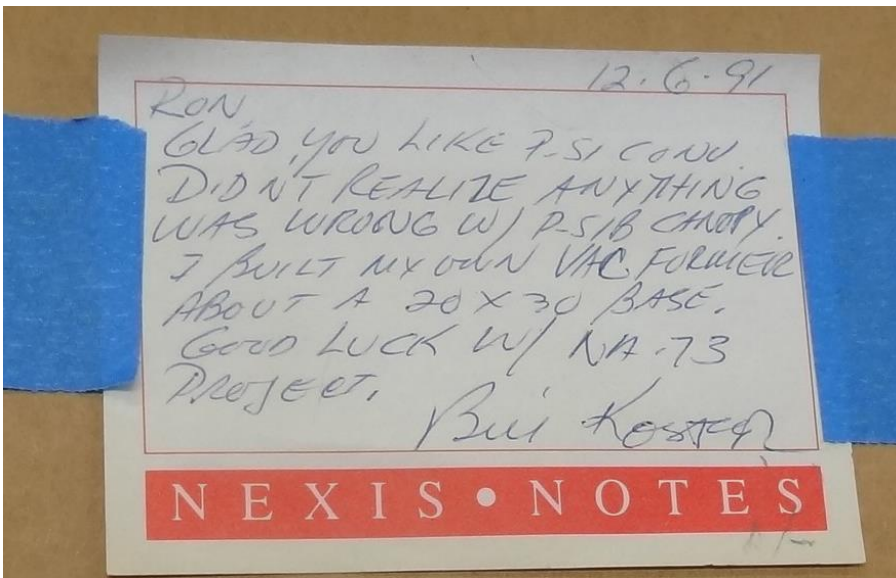 12.6.91
RON
GLAD YOU LIKE P-51 CONV.
DIDNT REALIZE ANYTHING
WAS WRONG W/ P-51B CANOPY.
I BUILT MY OWN VAC FORMER
ABOUT A 20 X 30 BASE.
GOOD LUCK W/ NA-73
PROJECT.
Bill Koster
NEXIS • NOTES